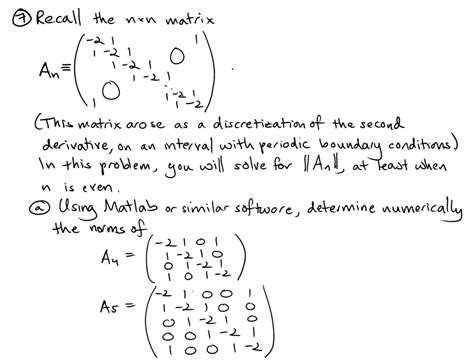 ⑦ Recall the n×n matrix
An ≡ ( -2 1 1
1 -2 1 0
1 -2 1
1 -2 1
0 1 -2 1
1 1 -2 ) .
(This matrix arose as a discretization of the second
derivative, on an interval with periodic boundary conditions)
In this problem, you will solve for ||An||, at least when
n is even.
ⓐ Using Matlab or similar software, determine numerically
the norms of
A4 = ( -2 1 0 1
1 -2 1 0
0 1 -2 1
1 0 1 -2 )
A5 = ( -2 1 0 0 1
1 -2 1 0 0
0 1 -2 1 0
0 0 1 -2 1
1 0 0 1 -2 )